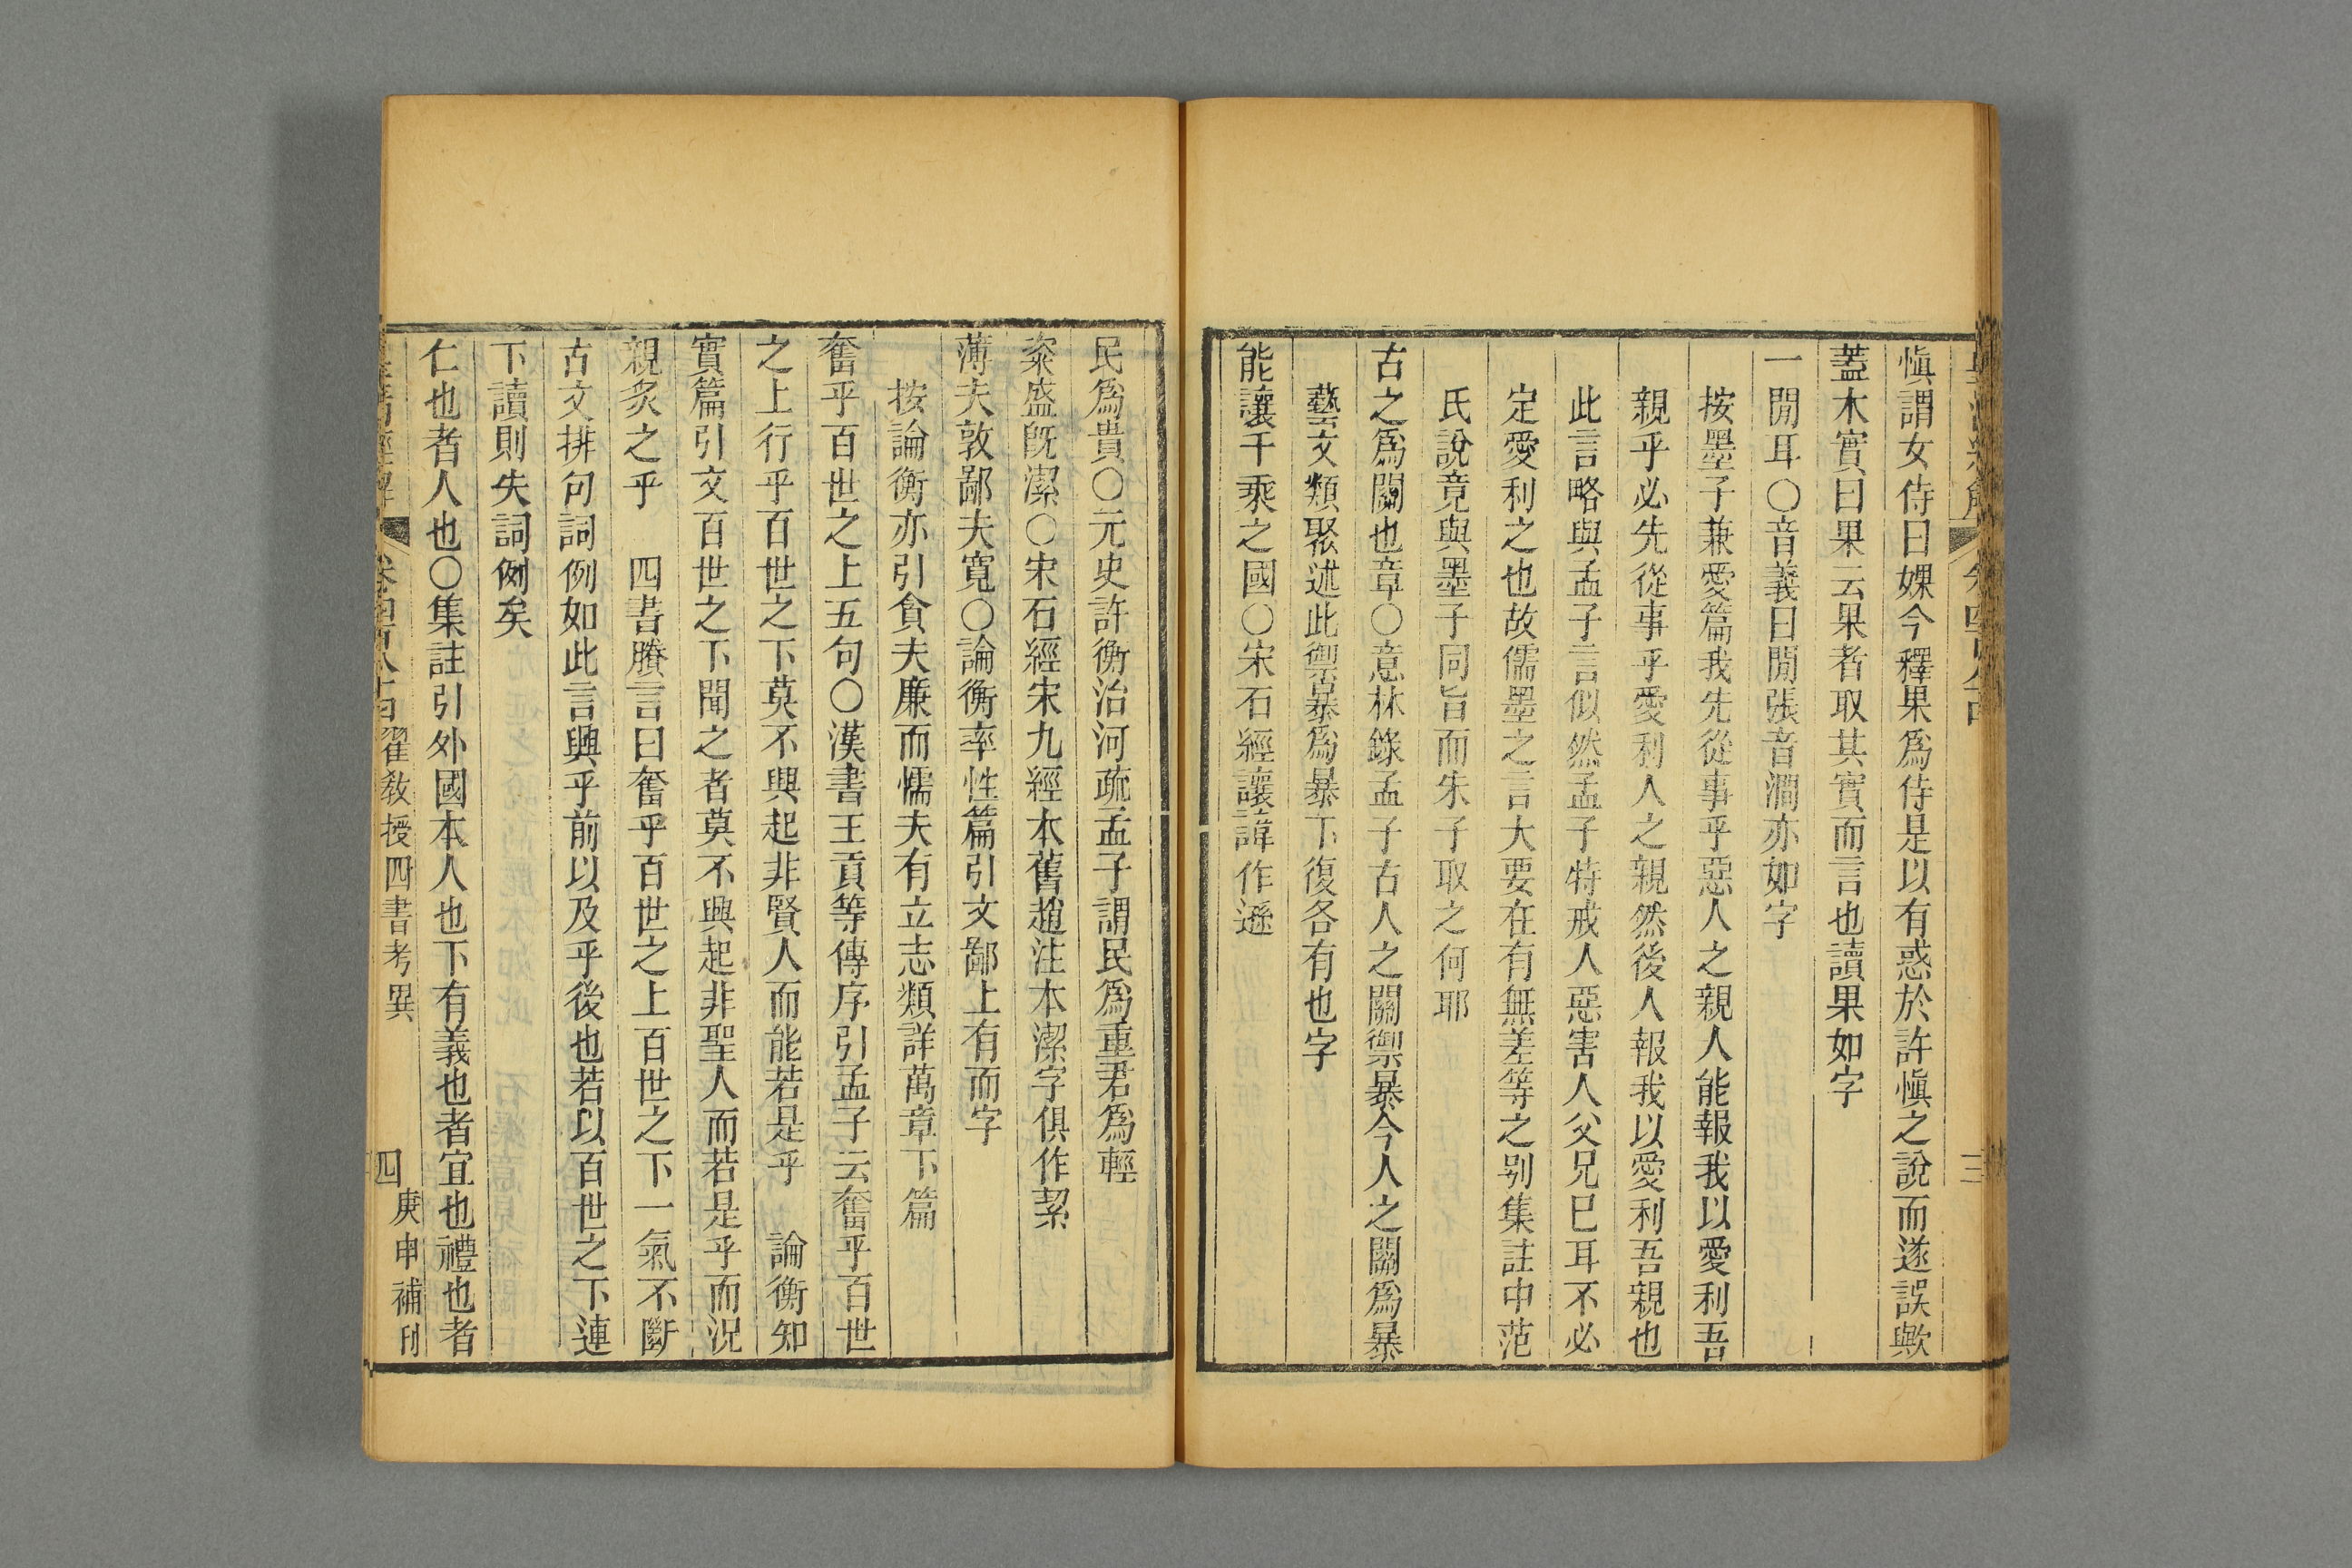 愼謂女侍曰婐今釋果爲侍是以有惑於許愼之說而遂誤歟
蓋木實曰果云果者取其實而言也讀果如字
一閒耳〇音義曰閒張音澗亦如字
按墨子兼愛篇我先從事乎惡人之親人能報我以愛利吾
親乎必先從事乎愛利人之親然後人報我以愛利吾親也
此言略與孟子言似然孟子特戒人惡害人父兄巳耳不必
定愛利之也故儒墨之言大要在有無差等之別集註中范
氏說竟與墨子同旨而朱子取之何耶
古之爲關也章〇意林錄孟子古人之關禦暴今人之關爲暴
藝文類聚述此禦暴爲暴下復各有也字
能讓千乘之國〇宋石經讓諱作遜
民爲貴〇元史許衡治河疏孟子謂民爲重君爲輕
粢盛旣潔〇宋石經宋九經本舊趙注本潔字俱作絜
薄夫敦鄙夫寬〇論衡率性篇引文鄙上有而字
按論衡亦引貪夫廉而懦夫有立志類詳萬章下篇
奮乎百世之上五句〇漢書王貢等傳序引孟子云奮乎百世
之上行乎百世之下莫不興起非賢人而能若是乎　論衡知
實篇引文百世之下聞之者莫不興起非聖人而若是乎而況
親炙之乎　四書賸言曰奮乎百世之上百世之下一氣不斷
古文排句詞例如此言興乎前以及乎後也若以百世之下連
下讀則失詞例矣
仁也者人也〇集註引外國本人也下有義也者宜也禮也者
皇清經解 卷四百八十四 翟教授四書考異 四 庚申補刊